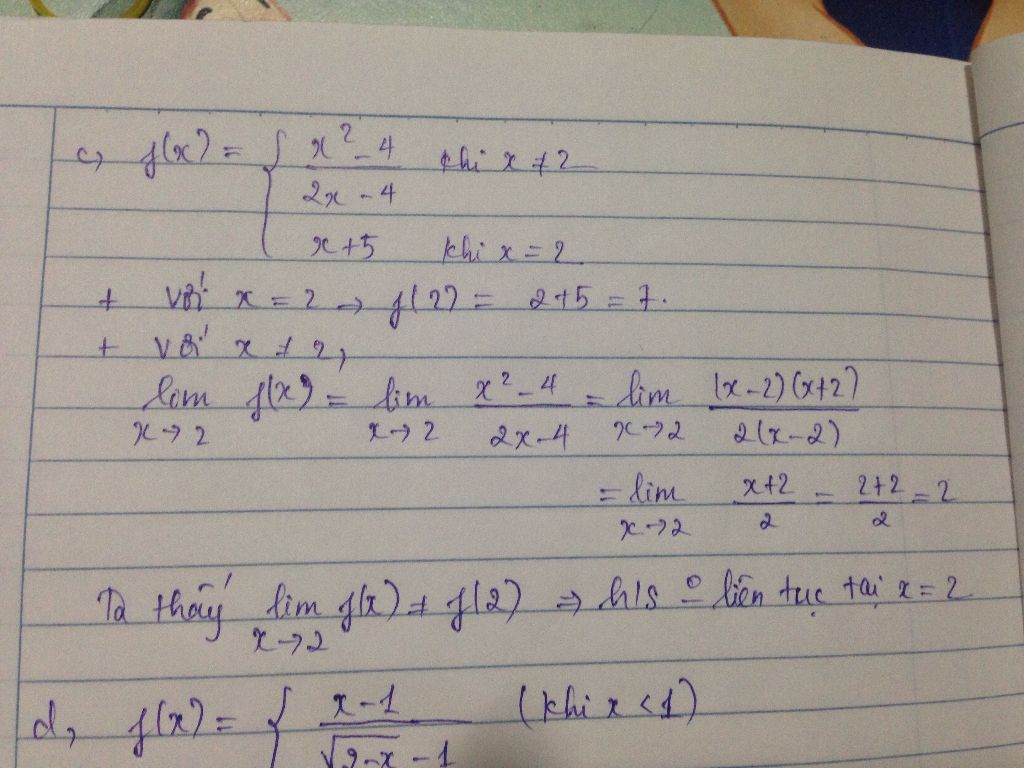 c, f(x) = { x² - 4 / 2x - 4 khi x ≠ 2
x + 5 khi x = 2
+ với x = 2 → f(2) = 2 + 5 = 7.
+ với x ≠ 2,
lim f(x) = lim x² - 4 / 2x - 4 = lim (x-2)(x+2) / 2(x-2)
x→2 x→2 x→2
= lim x+2 / 2 = 2+2 / 2 = 2
x→2
Ta thấy lim f(x) ≠ f(2) ⇒ h/s o liên tục tại x = 2
x→2
d, f(x) = { x - 1 / √2-x - 1 (khi x < 1)